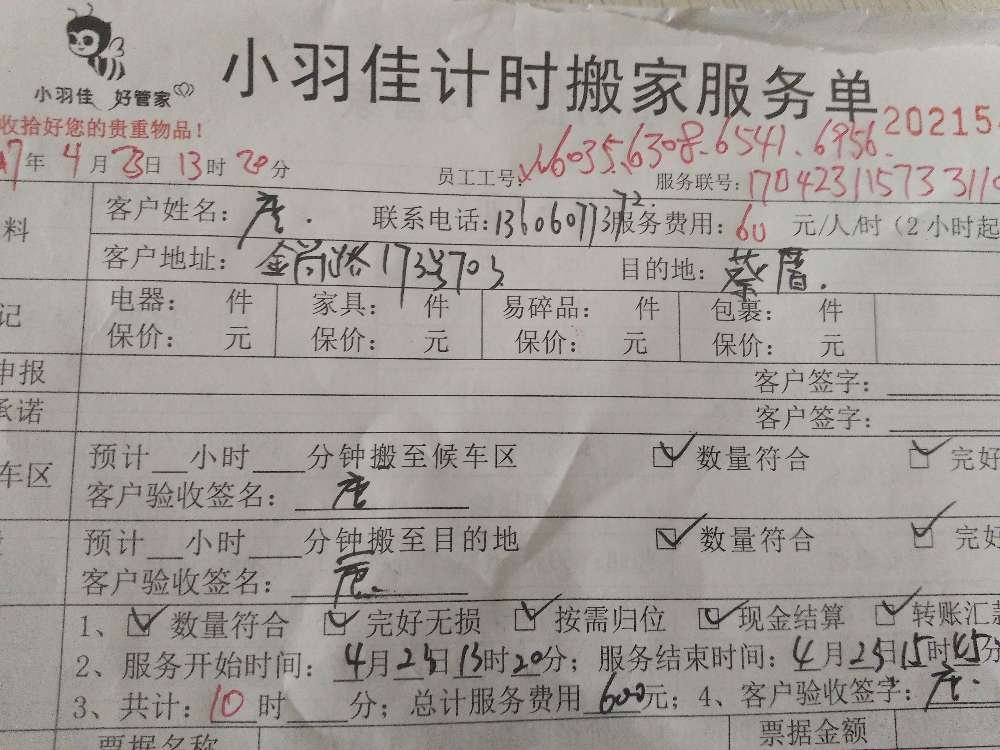 小羽佳 好管家
小羽佳计时搬家服务单
收拾好您的贵重物品!
7年4月23日13时20分
员工工号: 6035.6308.6541.6956.
服务联号:
料
客户姓名: 唐. 联系电话:13606077372. 服务费用:60元/人/时(2小时起
客户地址: 金尚路173号703 目的地: 蔡厝.
记
电器: 件 家具: 件 易碎品: 件 包裹: 件
保价: 元 保价: 元 保价: 元 保价: 元
申报 客户签字:
承诺 客户签字:
车区
预计__小时___分钟搬至候车区 数量符合 完好
客户验收签名: 唐
预计__小时___分钟搬至目的地 数量符合 完好
客户验收签名: 唐.
1、 数量符合 完好无损 按需归位 现金结算 转账汇款
2、服务开始时间:4月23日13时20分;服务结束时间:4月23日15时45分
3、共计:10时___分;总计服务费用600元;4、客户验收签字:唐.
票据名称 票据金额